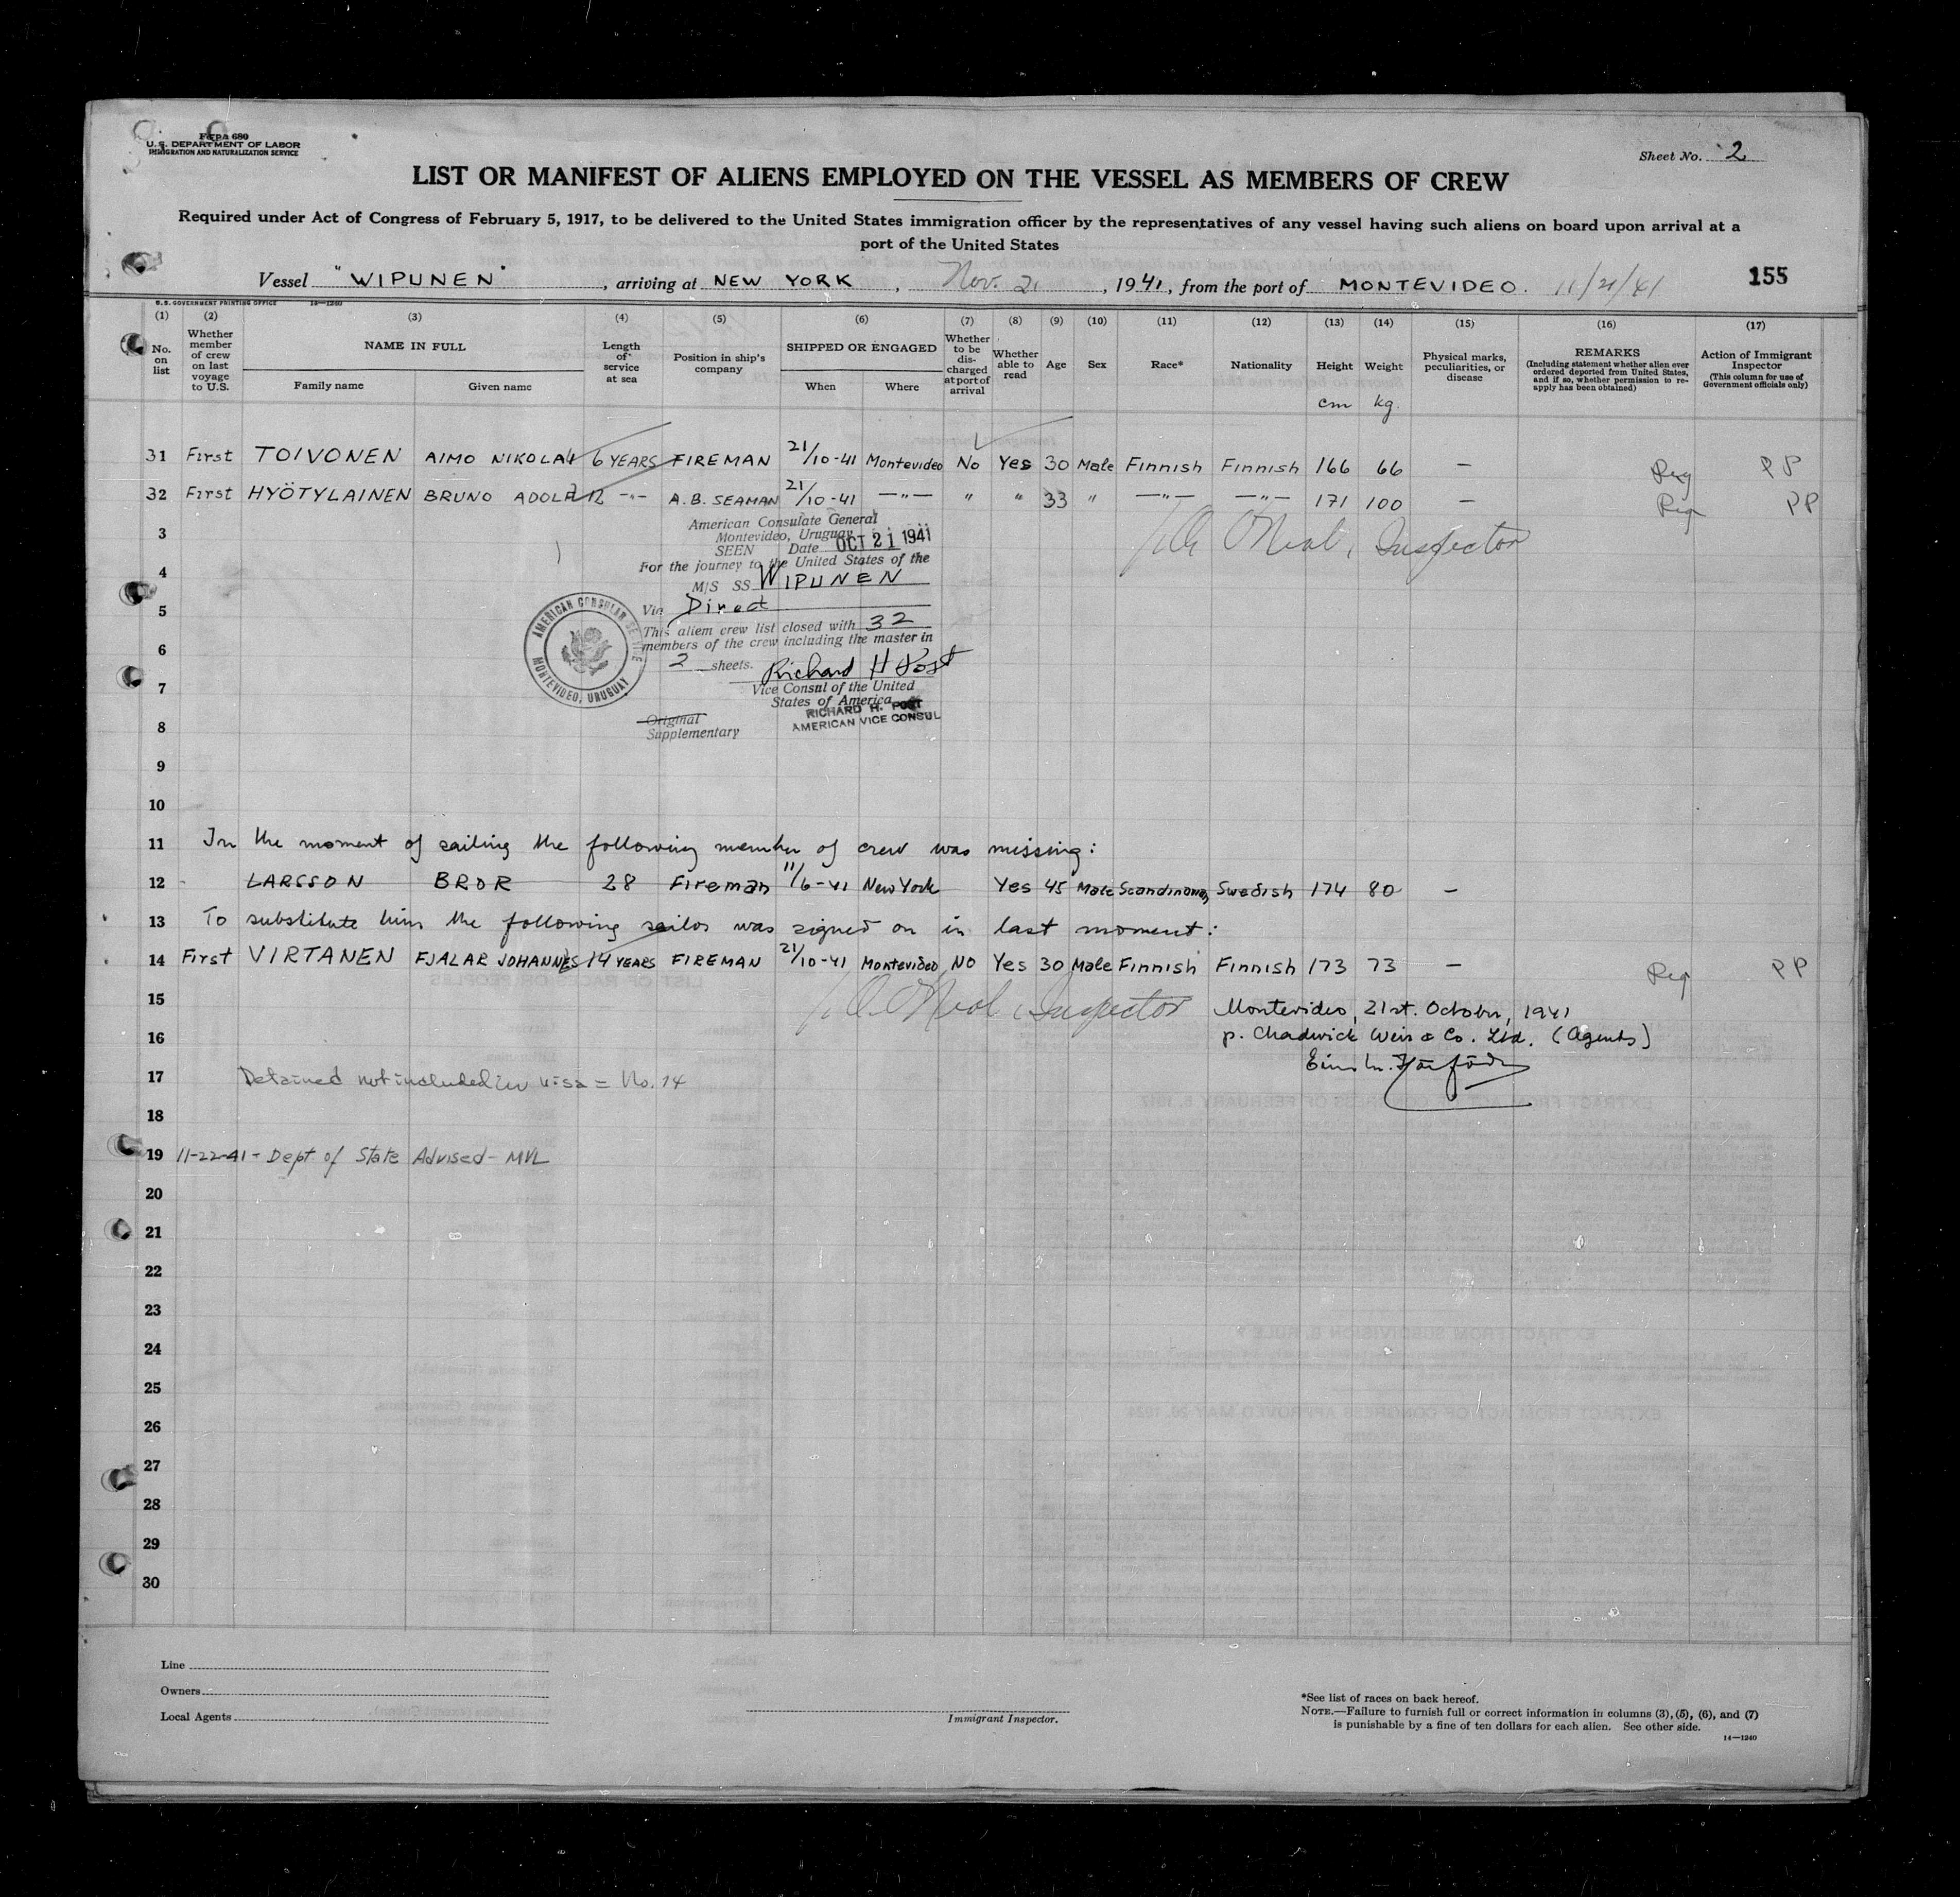 Form 680
U.S. DEPARTMENT OF LABOR
IMMIGRATION AND NATURALIZATION SERVICE
Sheet No. 2
LIST OR MANIFEST OF ALIENS EMPLOYED ON THE VESSEL AS MEMBERS OF CREW
Required under Act of Congress of February 5, 1917, to be delivered to the United States immigration officer by the representatives of any vessel having such aliens on board upon arrival at a
port of the United States
Vessel "WIPUNEN", arriving at NEW YORK, Nov. 21, 1941, from the port of MONTEVIDEO. 11/21/41 155
U.S. GOVERNMENT PRINTING OFFICE 14—1240
(1) No. on list
(2) Whether member of crew on last voyage to U.S.
(3) NAME IN FULL Family name Given name
(4) Length of service at sea
(5) Position in ship's company
(6) SHIPPED OR ENGAGED When Where
(7) Whether to be discharged at port of arrival
(8) Whether able to read
(9) Age
(10) Sex
(11) Race*
(12) Nationality
(13) Height cm
(14) Weight kg.
(15) Physical marks, peculiarities, or disease
(16) REMARKS (Including statement whether alien ever ordered deported from United States, and if so, whether permission to re-apply has been obtained)
(17) Action of Immigrant Inspector (This column for use of Government officials only)
31 First TOIVONEN AIMO NIKOLAI 6 YEARS FIREMAN 21/10-41 Montevideo No Yes 30 Male Finnish Finnish 166 66 — Reg PP
32 First HYÖTYLAINEN BRUNO ADOLF 12 -"- A.B. SEAMAN 21/10-41 —"— " " 33 " —"— —"— 171 100 — Reg PP
3
American Consulate General
Montevideo, Uruguay
SEEN Date OCT 21 1941
For the journey to the United States of the
4
M/S SS WIPUNEN
5
Via Direct
This alien crew list closed with 32
members of the crew including the master in
6
2 sheets. Richard H Post
7
Vice Consul of the United
States of America
RICHARD H. POST
AMERICAN VICE CONSUL
AMERICAN CONSULAR SERVICE
MONTEVIDEO, URUGUAY
Original
Supplementary
Inspector
8
9
10
11 In the moment of sailing the following member of crew was missing:
12 LARSSON BROR 28 Fireman 11/6-41 New York Yes 45 Male Scandinavian Swedish 174 80 —
13 To substitute him the following sailor was signed on in last moment:
14 First VIRTANEN FJALAR JOHANNES 14 YEARS FIREMAN 21/10-41 Montevideo NO Yes 30 Male Finnish Finnish 173 73 — Reg PP
15 Inspector Montevideo, 21st. October, 1941
16 p. Chadwick Weir & Co. Ltd. (Agents)
17 Detained not included in visa = No. 14
18
19 11-22-41 - Dept of State Advised - MVL
20
21
22
23
24
25
26
27
28
29
30
Line
Owners
Local Agents
Immigrant Inspector.
*See list of races on back hereof.
NOTE.—Failure to furnish full or correct information in columns (3), (5), (6), and (7)
is punishable by a fine of ten dollars for each alien. See other side.
14—1240